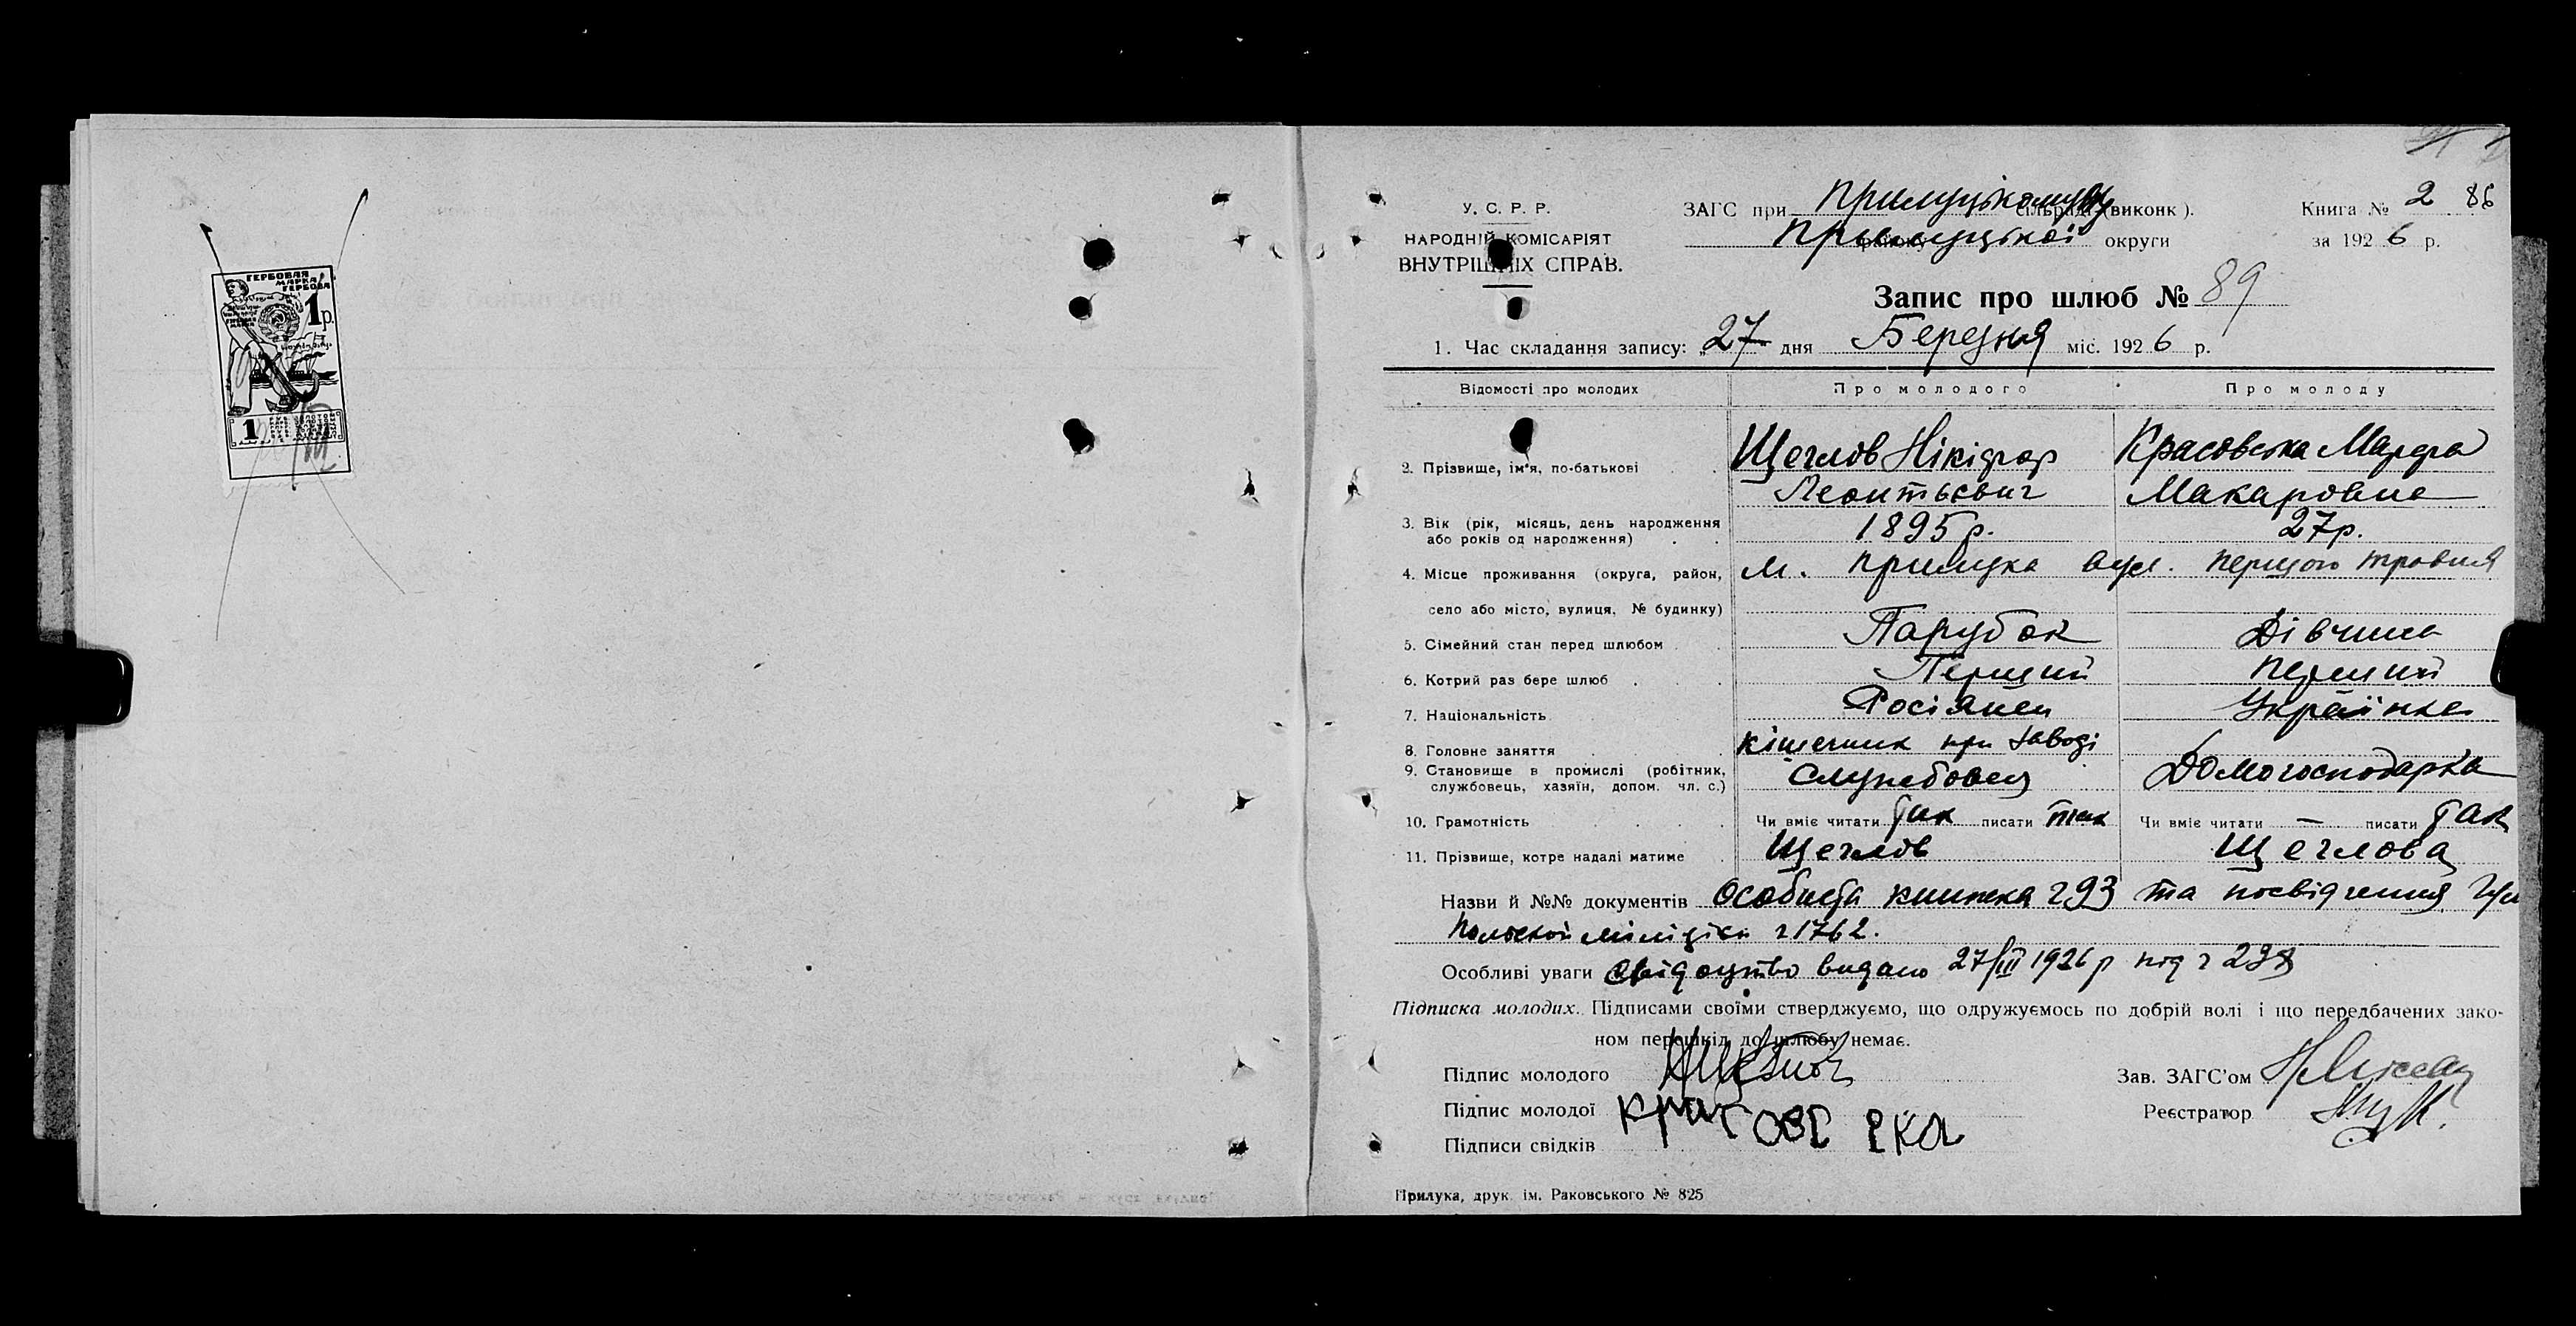 ГЕРБОВАЯ
МАРКА
ГЕРБОВА
1 р.
1
У. С. Р. Р.
НАРОДНІЙ КОМІСАРІЯТ
ВНУТРІШНІХ СПРАВ.
ЗАГС при Прилуцькому сільраді (виконк).
Прилуцької округи
Книга № 2 86
за 1926 р.
Запис про шлюб № 89
1. Час складання запису: „27 дня Березня міс. 1926 р.
Відомості про молодих Про молодого Про молоду
2. Прізвище, ім'я, по-батькові Щеглов Нікіфор Красовська Марфа
Леонтьєвич Макаровна
3. Вік (рік, місяць, день народження 1895 р. 27 р.
або років од народження)
4. Місце проживання (округа, район, м. Прилука вул. Першого травня
село або місто, вулиця, № будинку)
5. Сімейний стан перед шлюбом Парубок Дівчина
6. Котрий раз бере шлюб Перший Перший
7. Національність Росіянец Українка
8. Головне заняття кішечник при заводі
9. Становище в промислі (робітник, Службовец Домогосподарка
службовець, хазяїн, допом. чл. с.)
10. Грамотність Чи вміє читати так писати так Чи вміє читати — писати так
11. Прізвище, котре надалі матиме Щеглов Щеглова
Назви й №№ документів Особиста книжка ч 93 та посвідчення
міліціи ч 1762.
Особливі уваги Свідоцтво видано 27/III 1926 р під ч 238
Підписка молодих. Підписами своїми стверджуємо, що одружуємось по добрій волі і що передбачених зако-
ном перешкід до шлюбу немає.
Підпис молодого
Зав. ЗАГС'ом
Підпис молодої Красовска
Реєстратор
Підписи свідків
Прилука, друк. ім. Раковського № 825